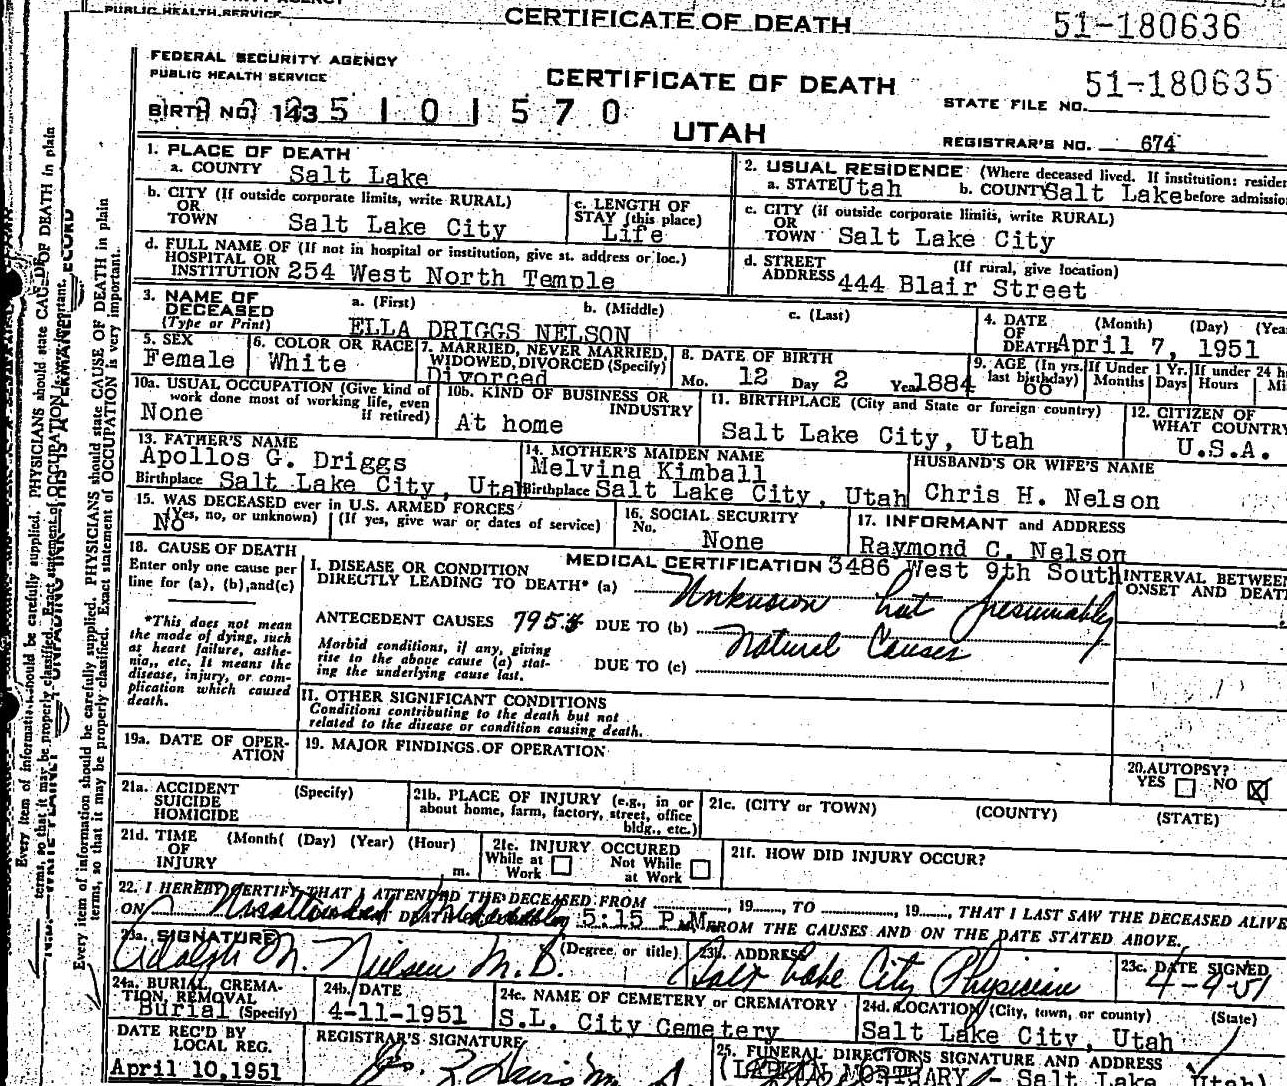 PUBLIC HEALTH SERVICE
CERTIFICATE OF DEATH
51-180636
FEDERAL SECURITY AGENCY
PUBLIC HEALTH SERVICE
CERTIFICATE OF DEATH
51-180635
STATE FILE NO.
BIRTH NO. 143 5 1 0 1 5 7 0
UTAH
REGISTRAR'S NO. 674
1. PLACE OF DEATH
a. COUNTY Salt Lake
2. USUAL RESIDENCE (Where deceased lived. If institution:
a. STATE Utah b. COUNTY Salt Lake before
b. CITY (If outside corporate limits, write RURAL)
OR
TOWN Salt Lake City
c. LENGTH OF
STAY (this place)
Life
c. CITY (if outside corporate limits, write RURAL)
OR
TOWN Salt Lake City
d. FULL NAME OF (If not in hospital or institution, give st. address or loc.)
HOSPITAL OR
INSTITUTION 254 West North Temple
d. STREET (If rural, give location)
ADDRESS 444 Blair Street
3. NAME OF
DECEASED
(Type or Print)
a. (First) b. (Middle) c. (Last)
ELLA DRIGGS NELSON
4. DATE (Month) (Day)
OF
DEATH April 7, 1951
5. SEX
Female
6. COLOR OR RACE
White
7. MARRIED, NEVER MARRIED,
WIDOWED, DIVORCED (Specify)
Divorced
8. DATE OF BIRTH
Mo. 12 Day 2 Year 1884
9. AGE (In yrs. last birthday) 66
If Under 1 Yr. Months Days
If under 24 Hours
10a. USUAL OCCUPATION (Give kind of
work done most of working life, even
if retired)
None
10b. KIND OF BUSINESS OR
INDUSTRY
At home
11. BIRTHPLACE (City and State or foreign country)
Salt Lake City, Utah
12. CITIZEN OF
WHAT COUNTRY
U.S.A.
13. FATHER'S NAME
Apollos G. Driggs
Birthplace Salt Lake City, Utah
14. MOTHER'S MAIDEN NAME
Melvina Kimball
Birthplace Salt Lake City, Utah
HUSBAND'S OR WIFE'S NAME
Chris H. Nelson
15. WAS DECEASED ever in U.S. ARMED FORCES
(Yes, no, or unknown) (If yes, give war or dates of service)
No
16. SOCIAL SECURITY
No.
None
17. INFORMANT and ADDRESS
Raymond C. Nelson
3486 West 9th South
18. CAUSE OF DEATH
Enter only one cause per
line for (a), (b), and(c)
*This does not mean
the mode of dying, such
as heart failure, asthe-
nia, etc. It means the
disease, injury, or com-
plication which caused
death.
MEDICAL CERTIFICATION
I. DISEASE OR CONDITION
DIRECTLY LEADING TO DEATH* (a) Unknown but presumably
ANTECEDENT CAUSES 795 DUE TO (b) Natural Causes
Morbid conditions, if any, giving
rise to the above cause (a) stat-
ing the underlying cause last.
DUE TO (c)
INTERVAL BETWEEN
ONSET AND DEATH
II. OTHER SIGNIFICANT CONDITIONS
Conditions contributing to the death but not
related to the disease or condition causing death.
19a. DATE OF OPER-
ATION
19. MAJOR FINDINGS OF OPERATION
20. AUTOPSY?
YES NO
21a. ACCIDENT (Specify)
SUICIDE
HOMICIDE
21b. PLACE OF INJURY (e.g., in or
about home, farm, factory, street, office
bldg., etc.)
21c. (CITY or TOWN) (COUNTY) (STATE)
21d. TIME (Month( (Day) (Year) (Hour)
OF
INJURY m.
21e. INJURY OCCURED
While at Work Not While at Work
21f. HOW DID INJURY OCCUR?
22. I HEREBY CERTIFY THAT I ATTENDED THE DECEASED FROM , 19 , TO , 19 , THAT I LAST SAW THE DECEASED ALIVE
ON DEATH 5:15 P.M. FROM THE CAUSES AND ON THE DATE STATED ABOVE.
23a. SIGNATURE (Degree or title)
Adolph M. Nielsen M.D.
23b. ADDRESS
Salt Lake City Physician
23c. DATE SIGNED
4-9-51
24a. BURIAL, CREMA-
TION, REMOVAL
Burial (Specify)
24b. DATE
4-11-1951
24c. NAME OF CEMETERY or CREMATORY
S.L. City Cemetery
24d. LOCATION (City, town, or county) (State)
Salt Lake City, Utah
DATE REC'D BY
LOCAL REG.
April 10,1951
REGISTRAR'S SIGNATURE
25. FUNERAL DIRECTOR'S SIGNATURE AND ADDRESS
(LARKIN MORTUARY - Salt Lake Utah)
Every item of information should be carefully supplied. PHYSICIANS should state CAUSE OF DEATH in plain
terms, so that it may be properly classified. Exact statement of OCCUPATION is very important.